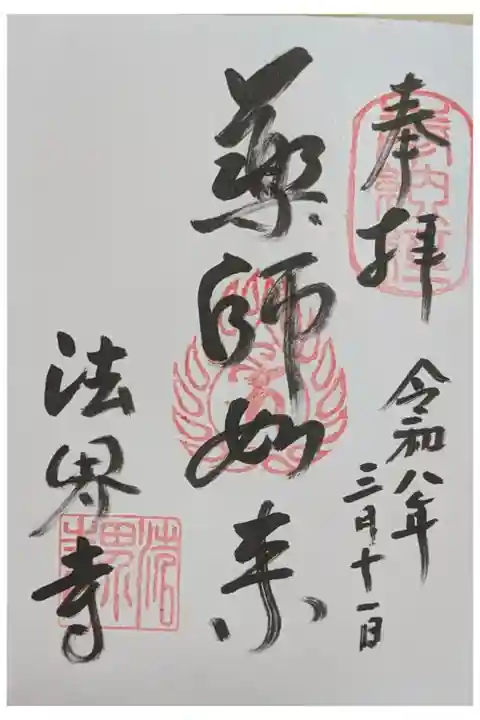 奉拝
令和八年
三月十一日
薬師如来
法界寺
法界寺